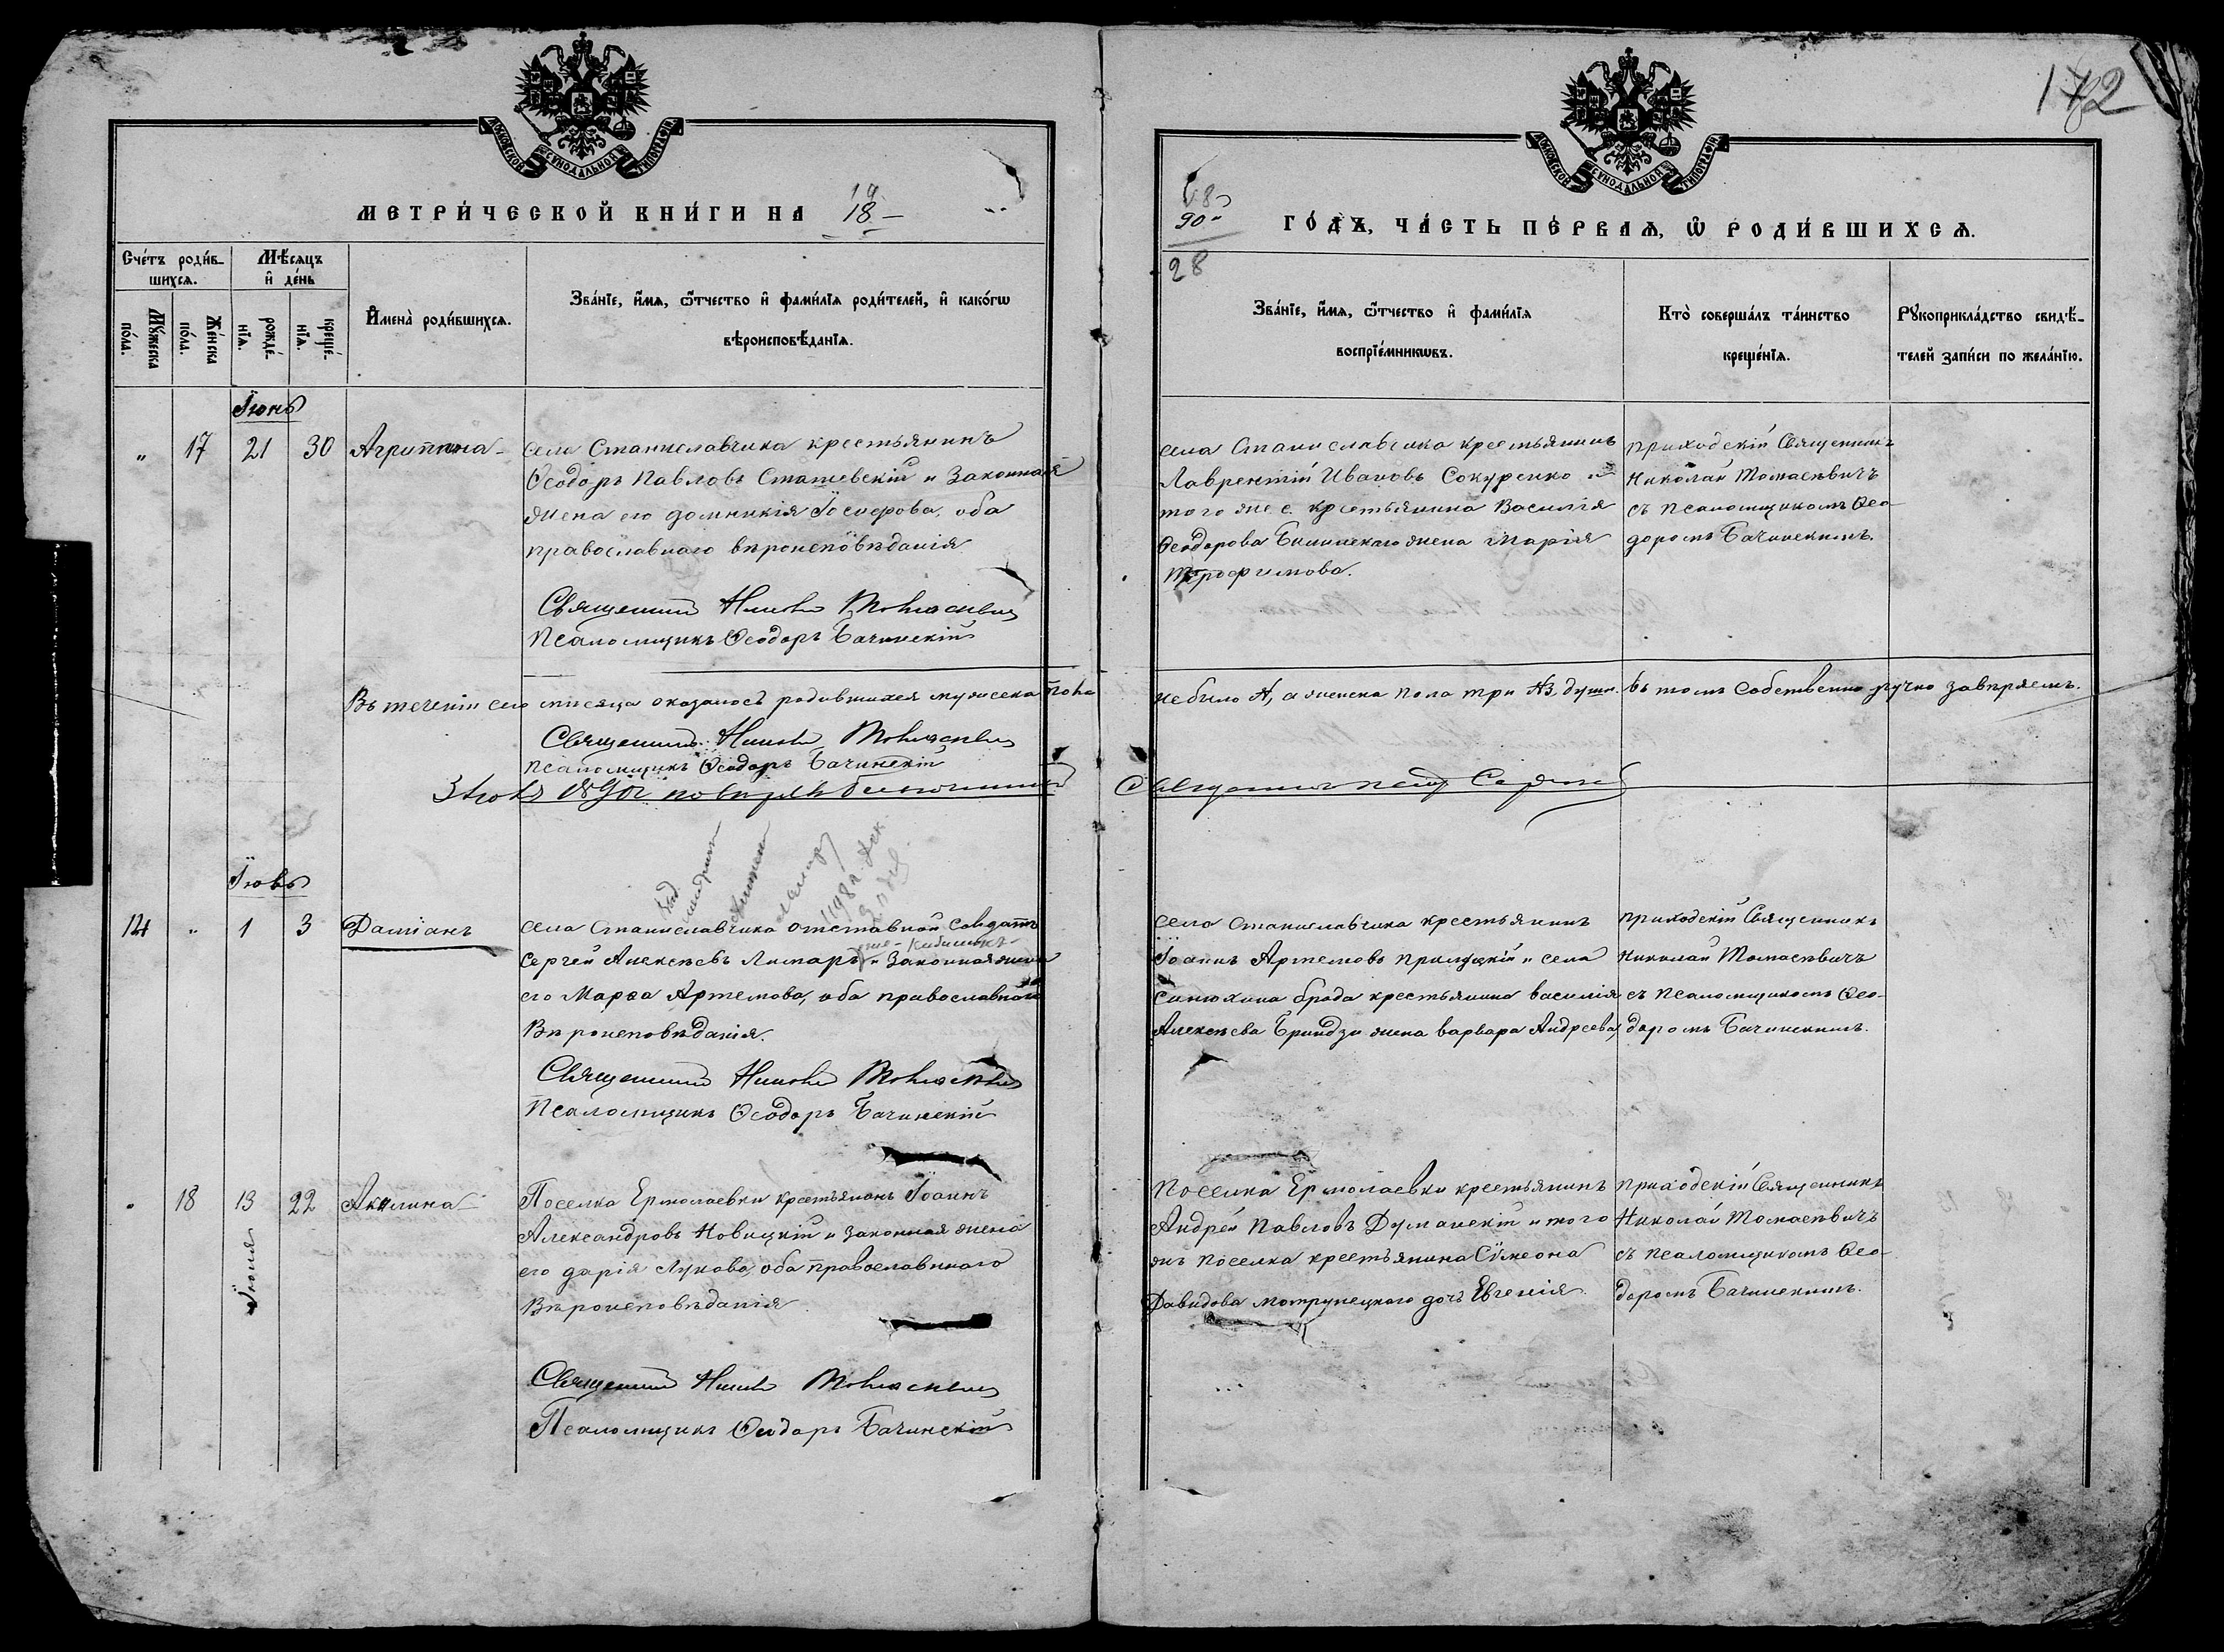 172
МОСКОВСКОЙ СѴНОДАЛЬНОЙ ТИПОГРАФІИ
МОСКОВСКОЙ СѴНОДАЛЬНОЙ ТИПОГРАФІИ
МЕТРИ́ЧЕСКОЙ КНИ́ГИ НА 18
90 ГО́ДЪ, ЧА́СТЬ ПЕ́РВАѦ, Ѡ҆ РОДИ́ВШИХСѦ.
28
Сче́тъ роди́в-
шихсѧ.
Мѣ́сѧцъ
и҆ де́нь
Мꙋ́жеска
по́ла.
Же́нска
по́ла.
рожде́-
нїѧ.
креще́-
нїѧ.
И҆мена̀ роди́вшихсѧ.
Зва́нїе, и҆́мѧ, ѻ҆́тчество и҆ фами́лїѧ роди́телей, и҆ како́гѡ
вѣроисповѣ́данїѧ.
Зва́нїе, и҆́мѧ, ѻ҆́тчество и҆ фами́лїѧ
воспрїе́мникѡвъ.
Кто̀ соверша́лъ та́инство
креще́нїѧ.
Рꙋкоприкла́дство свидѣ́-
телей за́писи по жела́нїю.
Іюнь
„ 17 21 30 Агриппина
села Станиславчика крестьянинъ
Ѳеодоръ Павловъ Сташевскій и законная
жена его Домникія Іосифова, оба
православнаго вѣроисповѣданія
Священникъ Николай Томасевичъ
Псаломщикъ Ѳеодоръ Бачинскій
села Станиславчика крестьянинъ
Лаврентій Ивановъ Сокуренко и
того же с. крестьянина Василія
Ѳеодорова жена Марія
Трофимова.
приходскій Священникъ
Николай Томасѣвичъ
съ псаломщикомъ Ѳео-
доромъ Бачинскимъ.
Въ теченіи сего мѣсяца оказалось родившихся мужеска пола
не было, а женска пола три душы. въ томъ собственно ручно завѣряемъ.
Священникъ Николай Томасевичъ
Псаломщикъ Ѳеодоръ Бачинскій
Священникъ
Іюль
14 „ 1 3 Даміанъ
села Станиславчика отставной солдатъ
Сергѣй Алексѣевъ Лимаръ и законная жена
его Марѳа Артемова, оба православнаго
Вѣроисповѣданія.
Священникъ Николай Томасевичъ
Псаломщикъ Ѳеодоръ Бачинскій
села Станиславчика крестьянинъ
Іоаннъ Артемовъ Прилуцкій и села
Синюхина брода крестьянина василія
Алексѣева Бриндзи жена варвара Андреева,
приходскій Священникъ
Николай Томасѣвичъ
съ псаломщикомъ Ѳео-
доромъ Бачинскимъ.
„ 18 13 22 Акилина
Іюля
Поселка Ермолаевки крестьянинъ Іоаннъ
Александровъ Новицкій и законная жена
его Дарія Лукова, оба православнаго
Вѣроисповѣданія
Священникъ Николай Томасевичъ
Псаломщикъ Ѳеодоръ Бачинскій
Поселка Ермолаевки крестьянинъ
Андрей Павловъ Думанскій и того
жъ поселка крестьянина Сѵмеона
Давидова дочь Евгенія.
приходскій Священникъ
Николай Томасѣвичъ
съ псаломщикомъ Ѳео-
доромъ Бачинскимъ.